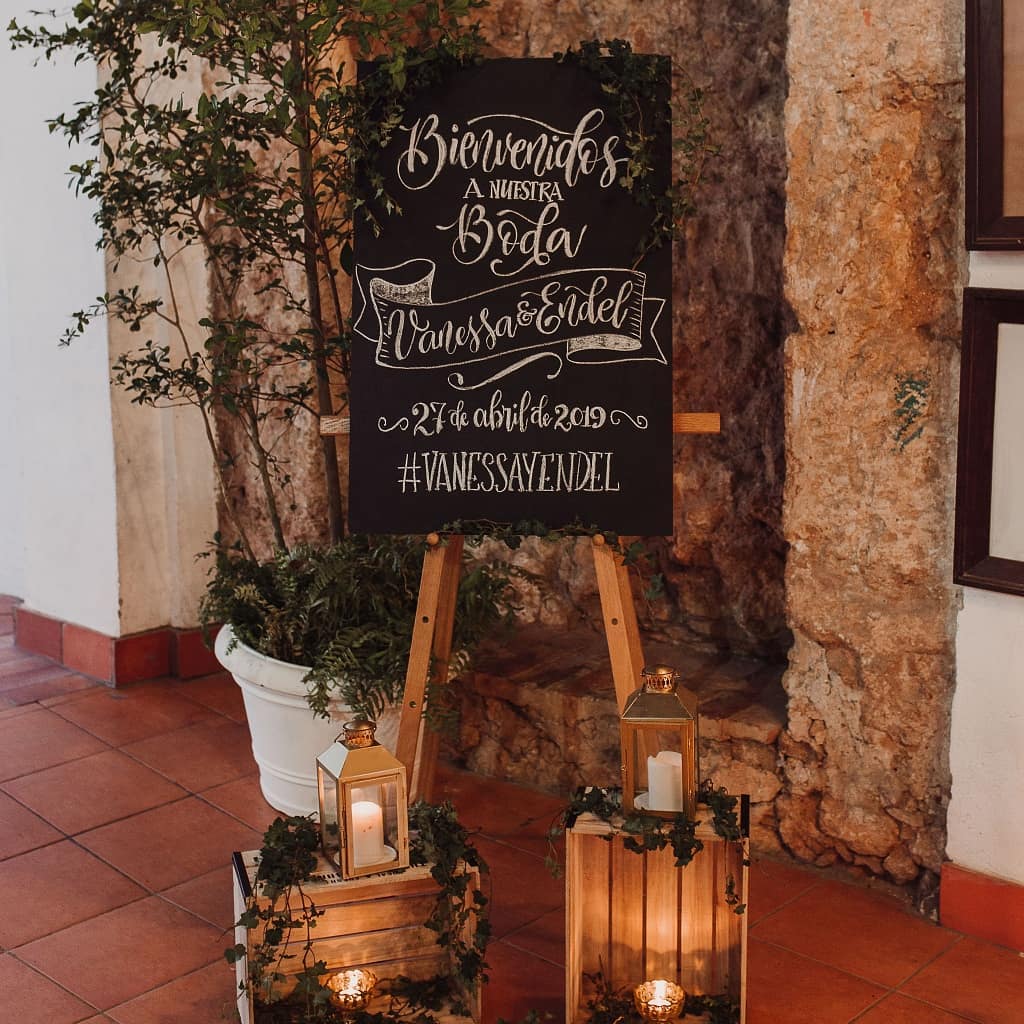 Bienvenidos
A NUESTRA
Boda
Vanessa & Endel
27 de abril de 2019
#VANESSAYENDEL